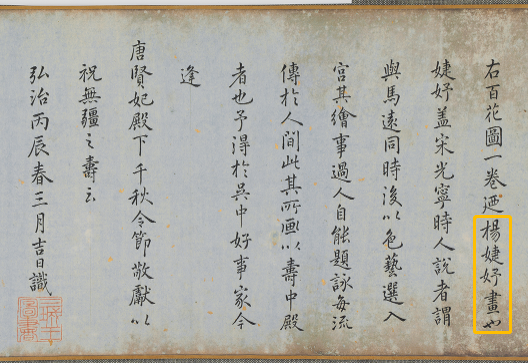 右百花圖一卷迺楊婕妤畫也
婕妤盖宋光寧時人說者謂
與馬遠同時後以色藝選入
宮其繪事過人自能題詠每流
傳於人間此其所畫以壽中殿
者也予得於吳中好事家今
逢
唐賢妃殿下千秋令節敬獻以
祝無疆之壽云
弘治丙辰春三月吉日識